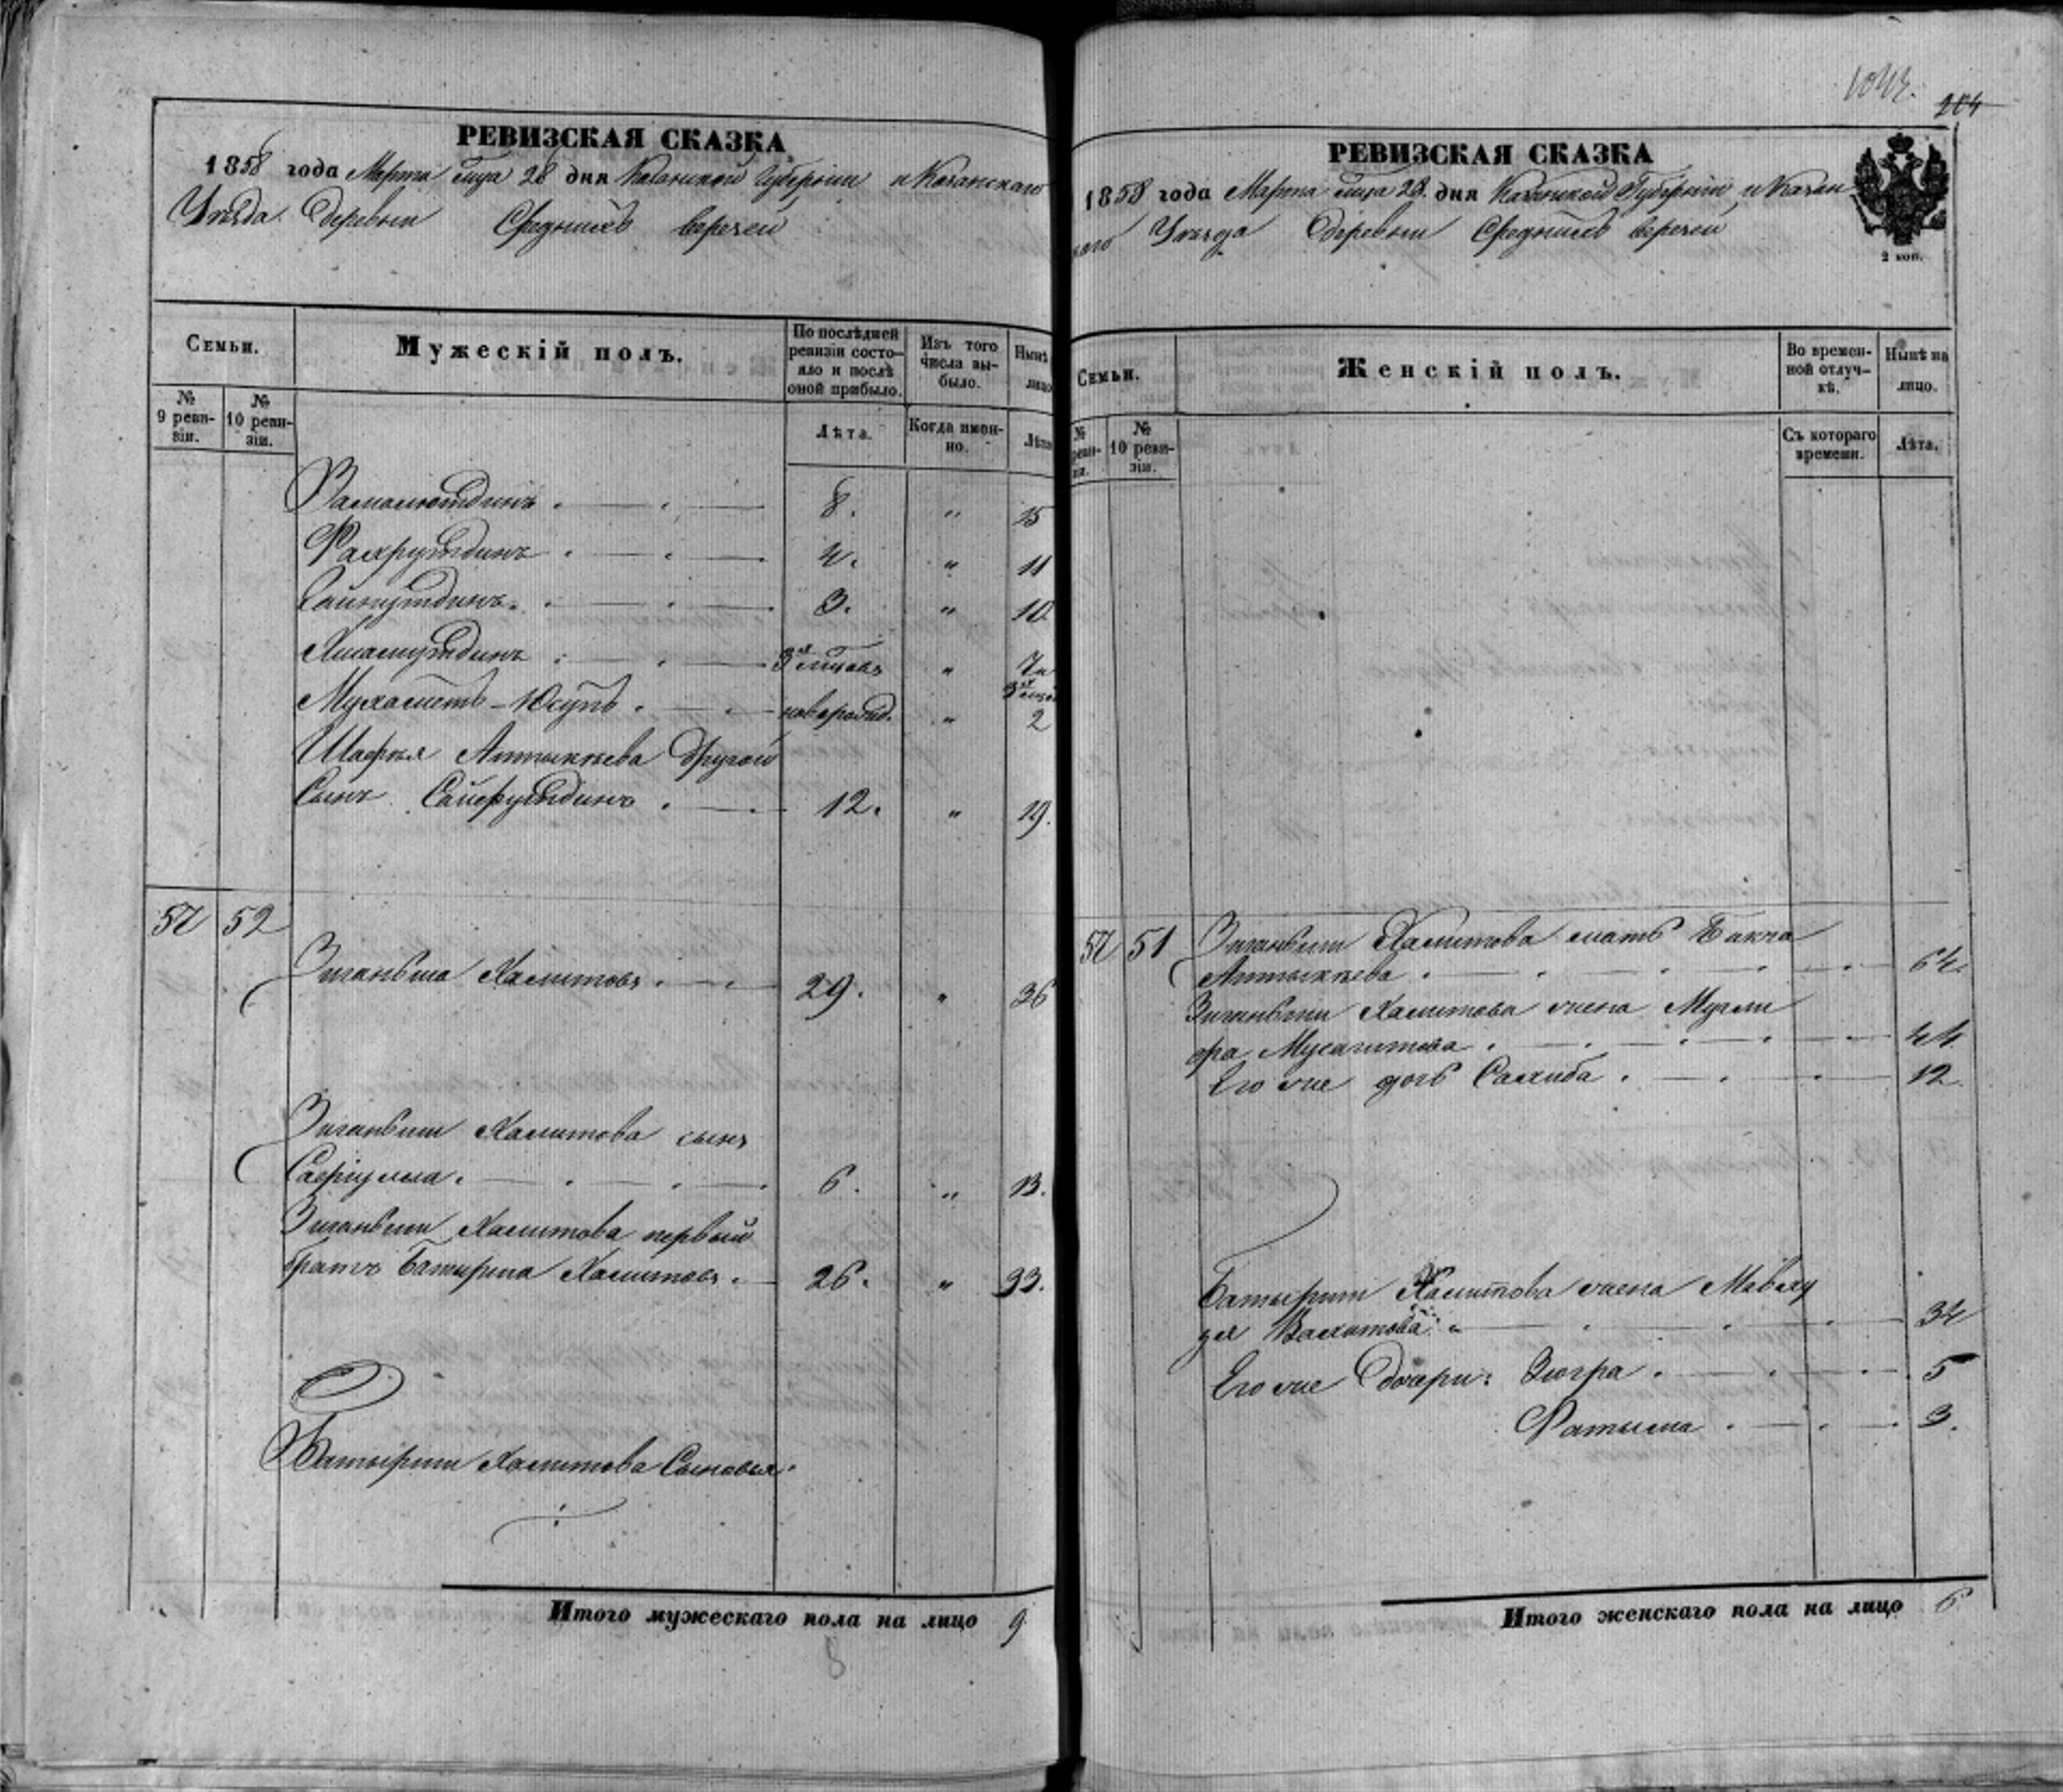 РЕВИЗСКАЯ СКАЗКА
1858 года Марта м̃ца 28 дня Казанской Губерніи и Казанскаго
Уѣзда Деревни Среднихъ верезей
Семьи.
Мужескій полъ.
По послѣдней ревизіи состояло и послѣ оной прибыло.
Изъ того числа выбыло.
Нынѣ лицо
№ 9 ревизіи.
№ 10 ревизіи.
Лѣта.
Когда именно.
Лѣта
Замалютдинъ 8. " 15
Фахрутдинъ 4. " 11
Зайнутдинъ 3. " 10.
Хисамутдинъ 3х мцовъ " 7 и 3х мцо
Мухаметъ-Юсупъ новорожд. " 2
Шафѣя Аптыкѣева другой
Сынъ Сайфутдинъ 12. " 19.
57 52
Зиганьша Хамитовъ 29. " 36
Зиганьши Хамитова сынъ
Сафіулла 6. " 13.
Зиганьши Хамитова первый
братъ Батырша Хамитовъ 26. " 33.
Батырши Хамитова Сыновья
Итого мужескаго пола на лицо 9
204
РЕВИЗСКАЯ СКАЗКА
1858 года Марта м̃ца 28. дня Казанской Губерніи и Казан
каго Уѣзда деревни Среднихъ верезей
2 коп.
Семьи.
Женскій полъ.
Во временной отлучкѣ.
Нынѣ на лицо.
№ реви- зи.
№ 10 ревизіи.
Съ котораго времени.
Лѣта.
57 51 Зиганьши Хамитова мать Бакча
Аптыкѣева 64.
Зиганьши Хамитова жена Мугли
фа Мусагитова 44
Его же дочь Сахиба 12
Батырши Хамитова жена Мавлу
дя Вахитова 34
Его же Дочери: Зюгра 5
Фатыма 3.
Итого женскаго пола на лицо 6